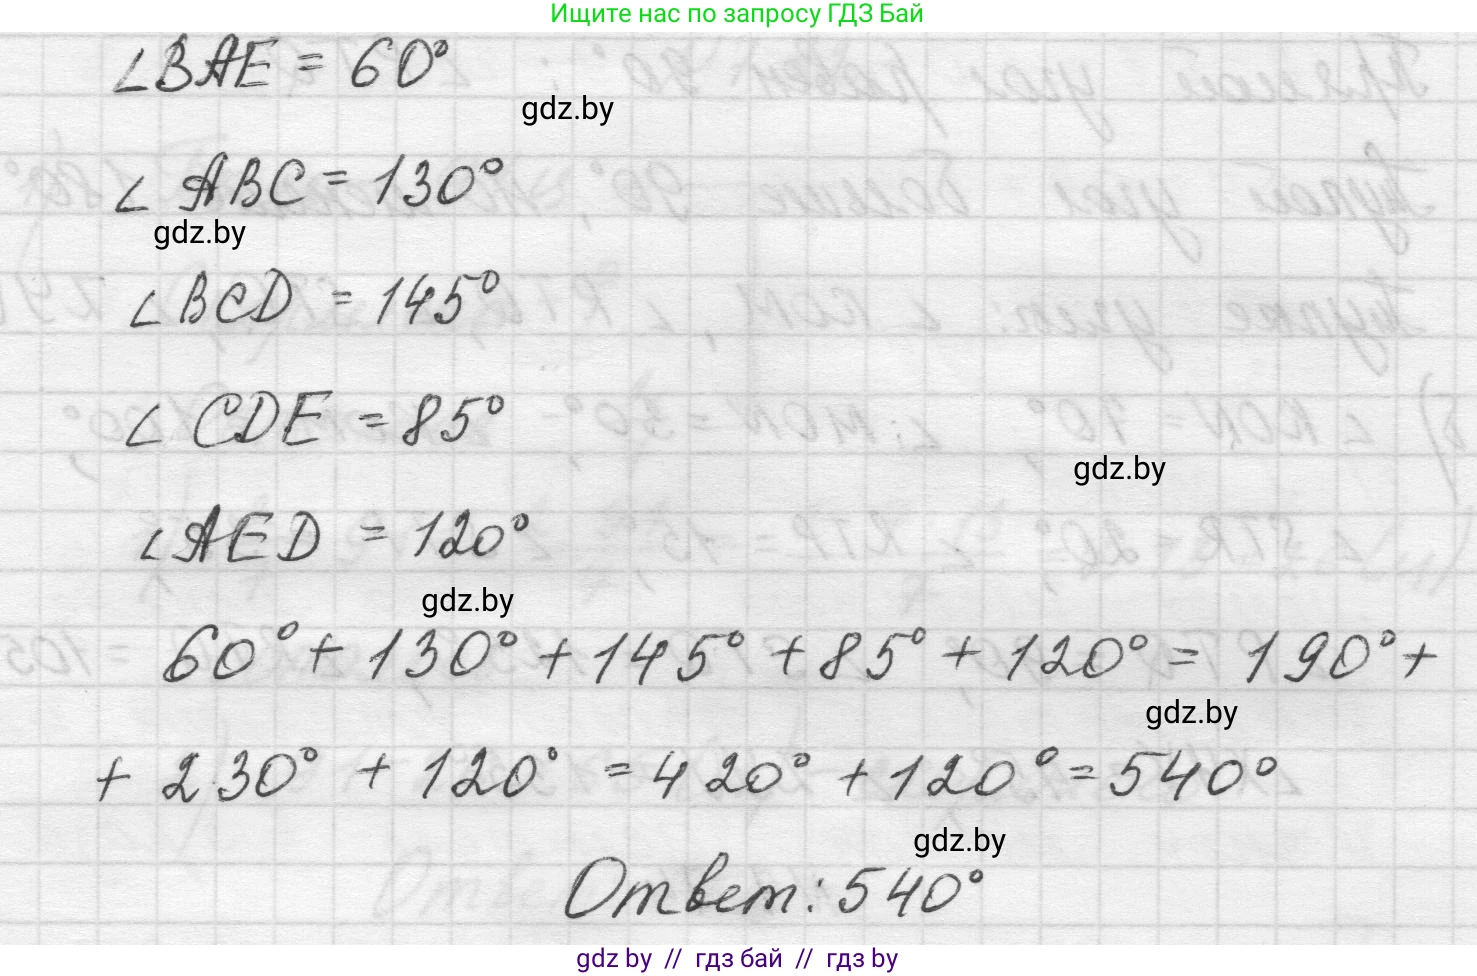 Ищите нас по запросу ГДЗ Бай
∠BAE = 60°
gdz.by
∠ABC = 130°
gdz.by
∠BCD = 145°
∠CDE = 85°
gdz.by
∠AED = 120°
gdz.by
60° + 130° + 145° + 85° + 120° = 190° +
gdz.by
+ 230° + 120° = 420° + 120° = 540°
gdz.by
Ответ: 540°
gdz by // гдз бай // гдз by